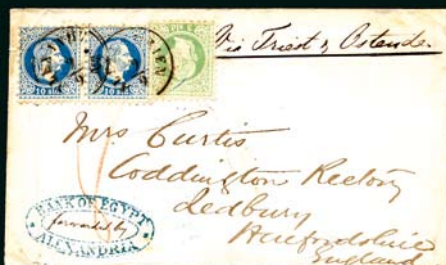 Via Triest & Ostende.
Mrs Curtis
Coddington Rectory
Ledbury
Herefordshire
England
BANK OF EGYPT
forwarded by
ALEXANDRIA